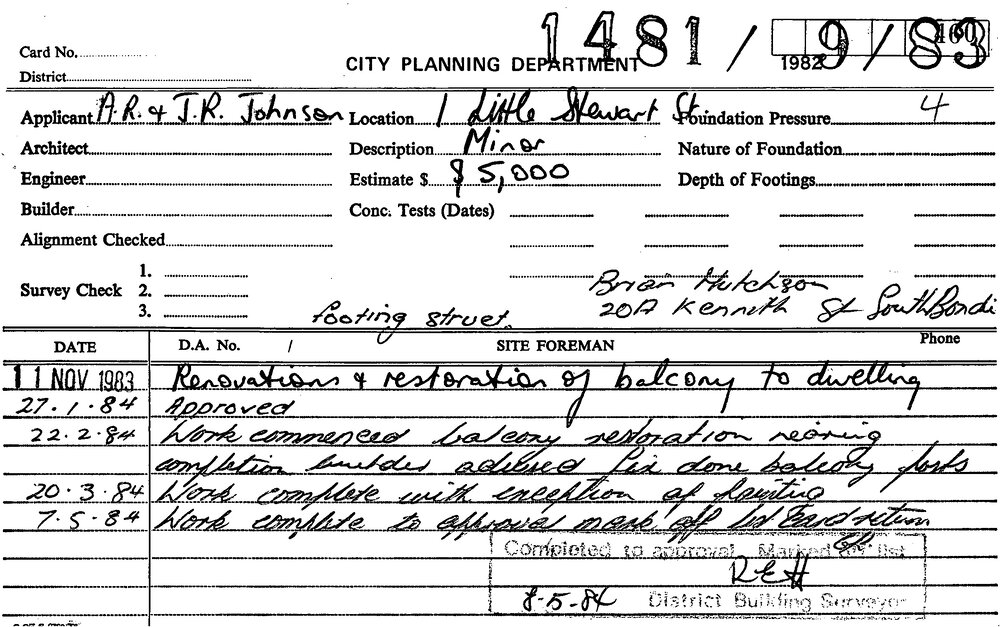 1481 / 9 / 83
Card No.
1982
CITY PLANNING DEPARTMENT
District
Applicant A.R. & J.R. Johnson Location 1 Little Stewart St. Foundation Pressure 4
Architect Description Minor Nature of Foundation
Engineer Estimate $ $5,000 Depth of Footings
Builder Conc. Tests (Dates)
Alignment Checked
1.
Survey Check 2.
3.
Brian Hutchson
20A Kenneth St South Bondi
footing struct.
DATE D.A. No. / SITE FOREMAN Phone
11 NOV 1983 Renovations & restoration of balcony to dwelling
27.1.84 Approved
22.2.84 Work commenced balcony restoration nearing
completion builder advised fix done balcony posts
20.3.84 Work complete with exception of painting
7.5.84 Work complete to approval mark off list card return
Completed to approval. Marked off list
REH
8-5-84 District Building Surveyor